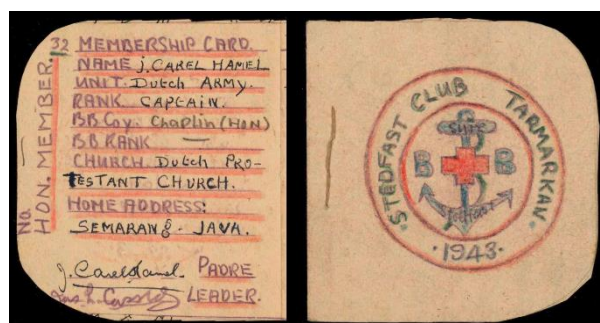 No. 32
HON. MEMBER.
MEMBERSHIP CARD.
NAME J. CAREL HAMEL
UNIT. Dutch Army.
RANK CAPTAIN.
BB Coy. Chaplin (HON)
BB RANK —
CHURCH Dutch PRO-
TESTANT CHURCH.
HOME ADDRESS:
SEMARANG - JAVA.
J. Carel Hamel. PADRE
LEADER.
STEDFAST CLUB TARMARKAN.
SURE
B B
Stedfast
·1943·